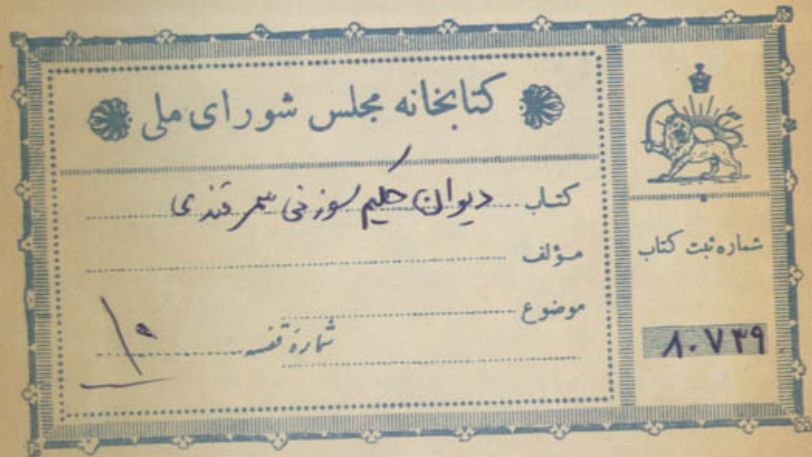 کتابخانه مجلس شورای ملی
کتاب دیوان حکیم سوزنی سمرقندی
مؤلف
موضوع
شماره قفسه
۱۰
شماره ثبت کتاب
۸۰۷۳۹